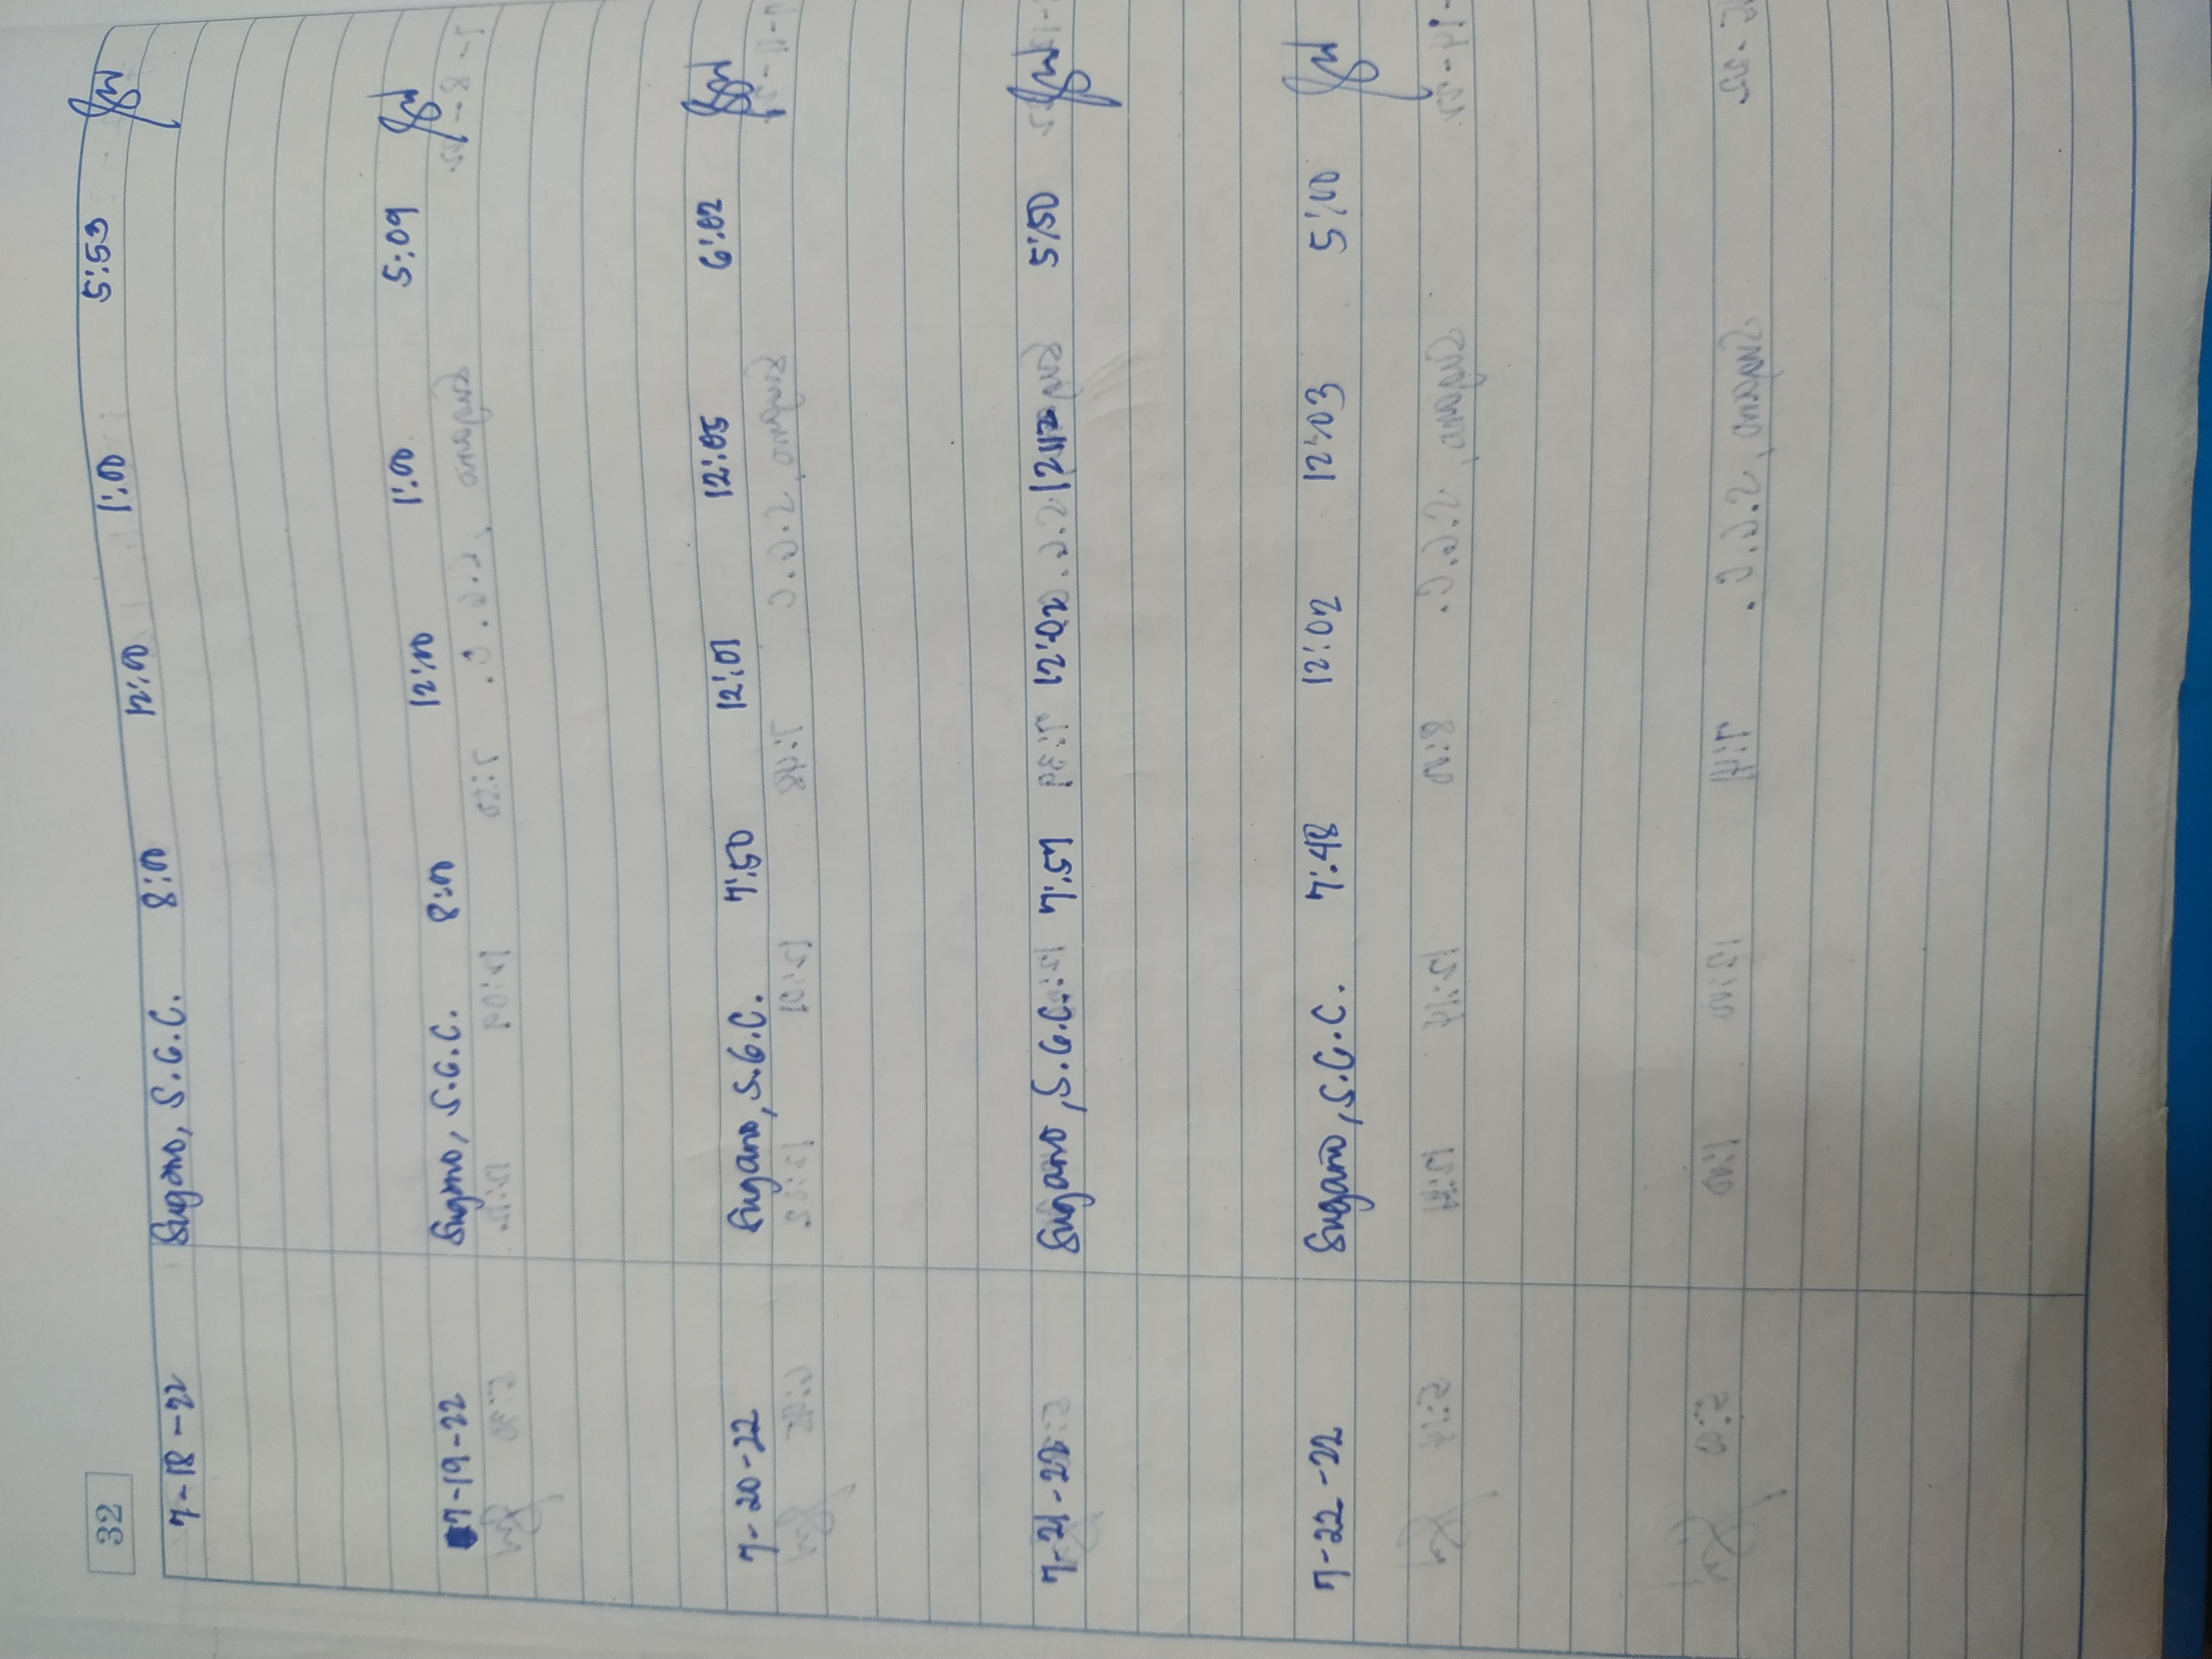 32
7-18-22 Bugano, S.G.C. 8:00 12:00 1:00 5:53
7-19-22 Bugano, S.G.C. 8:00 12:00 1:00 5:09
7-20-22 Bugano, S.G.C. 7:50 12:01 12:05 6:02
7-21-22 Bugano, S.G.C. 7:51 12:02 5:50
7-22-22 Bugano, S.G.C. 7:48 12:02 12:03 5:00